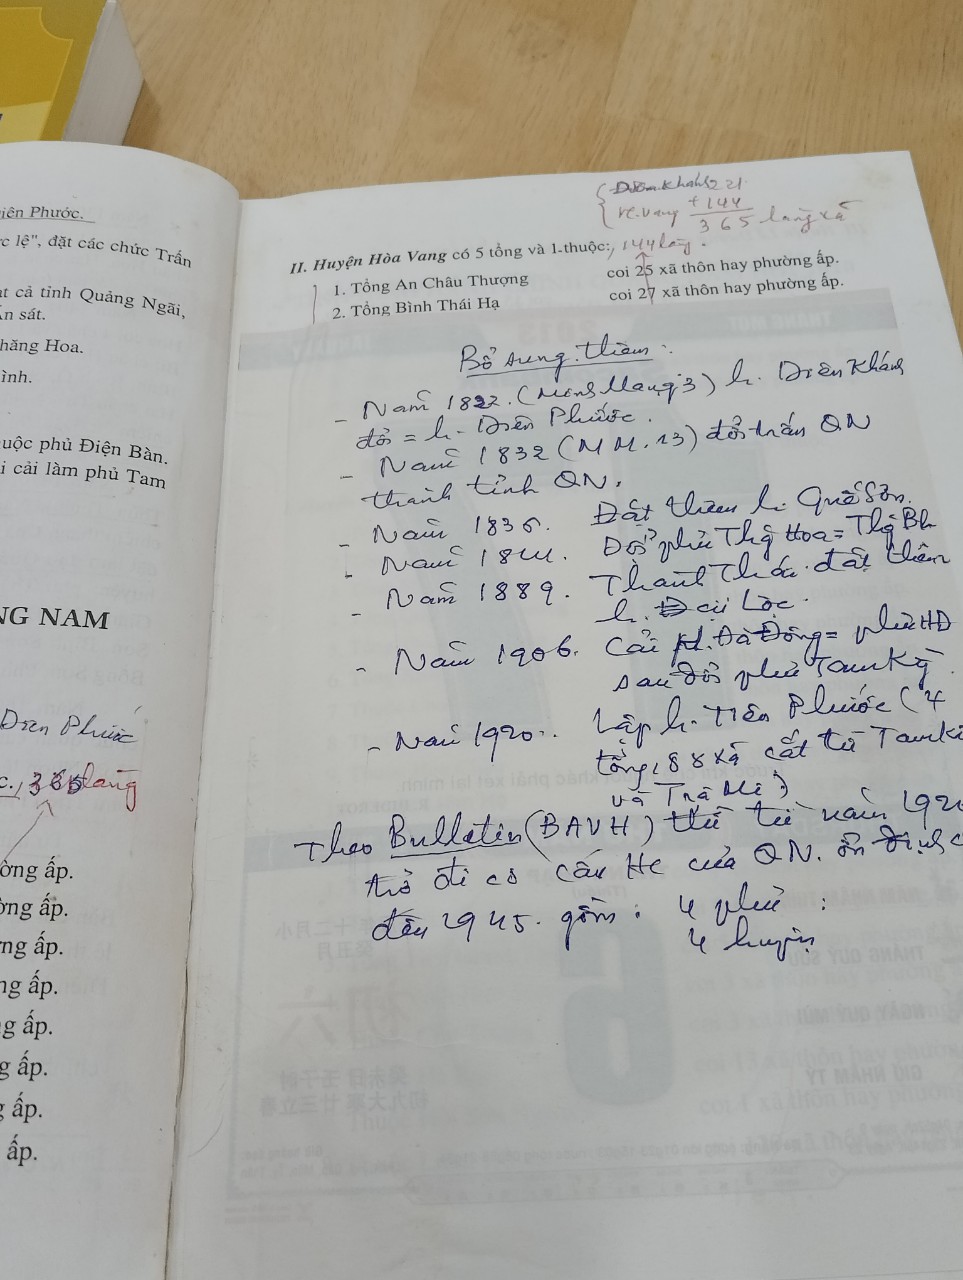 iên Phước.
c lệ", đặt các chức Trấn
t cả tỉnh Quảng Ngãi,
n sát.
hăng Hoa.
ình.
uộc phủ Điện Bàn.
i cải làm phủ Tam
NG NAM
Diên Phước
c.
làng
ờng ấp.
ờng ấp.
ng ấp.
ng ấp.
g ấp.
g ấp.
g ấp.
ấp.
Diên Khánh 221
H. Vang + 144
365 làng xã
II. Huyện Hòa Vang có 5 tổng và 1 thuộc: , 144 làng.
1. Tổng An Châu Thượng coi 25 xã thôn hay phường ấp.
2. Tổng Bình Thái Hạ coi 27 xã thôn hay phường ấp.
Bổ sung thêm:
- Năm 1822 (Minh Mạng 3) h. Diên Khánh
đổi = h. Diên Phước.
- Năm 1832 (MM. 13) đổi trấn QN
thành tỉnh QN.
- Năm 1836. Đặt thêm h. Quế Sơn.
- Năm 1841. Đổi phủ Thg Hoa = Thg Bh
- Năm 1889. Thành Thái đặt thêm
h. Đại Lộc.
- Năm 1906. Cải Đông = phủ HĐ
sau đổi phủ Tam Kỳ.
- Năm 1920. Lập h. Tiên Phước (4
tổng, 88 xã cắt từ Tam Kì
và Trà Mi)
Theo Bulletin (BAVH) thì từ năm 192
trở đi cơ cấu HC của QN. ổn định c
đến 1945. gồm: 4 phủ :
4 huyện